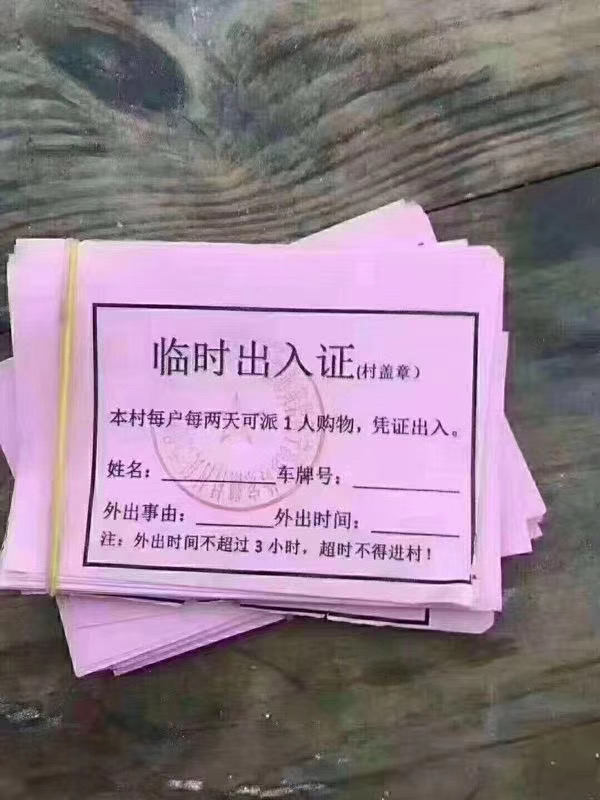 临时出入证(村盖章)
本村每户每两天可派1人购物，凭证出入。
姓名：__________ 车牌号：__________
外出事由：________ 外出时间：________
注：外出时间不超过3小时，超时不得进村！